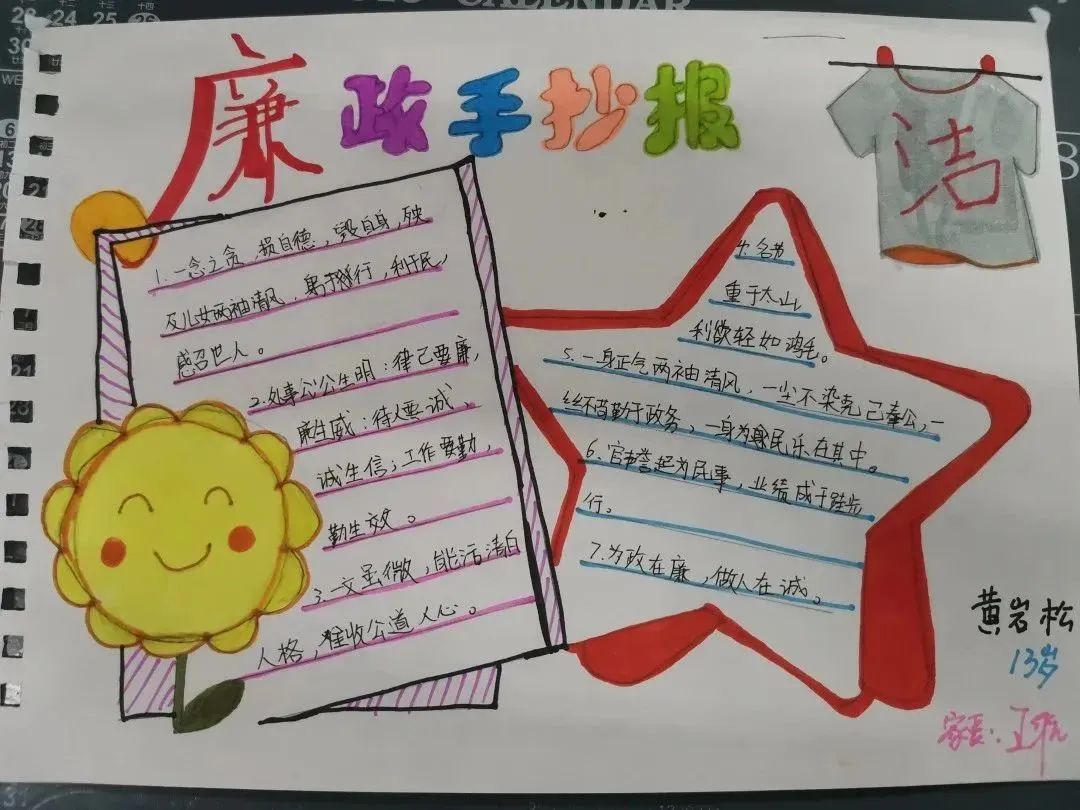 廉政手抄报
洁
1. 一念之贪,损自德,毁自身,殃
及儿女两袖清风,勇于 行,利于民,
感召世人。
2. 处事公公生明:律己要廉,
廉生威:待人要诚、
诚生信;工作要勤,
勤生效。
3. 一文虽微,能活清白
人格,难收公道人心。
4. 名节
重于太山
利欲轻如鸿毛。
5. 一身正气两袖清风,一尘不染克己奉公,一
丝不苟勤于政务,一身为 民乐在其中。
6. 官 誉起为民事,业绩成于跬步
行。
7. 为政在廉,做人在诚。
黄岩松
13岁
家长:王
CALENDAR